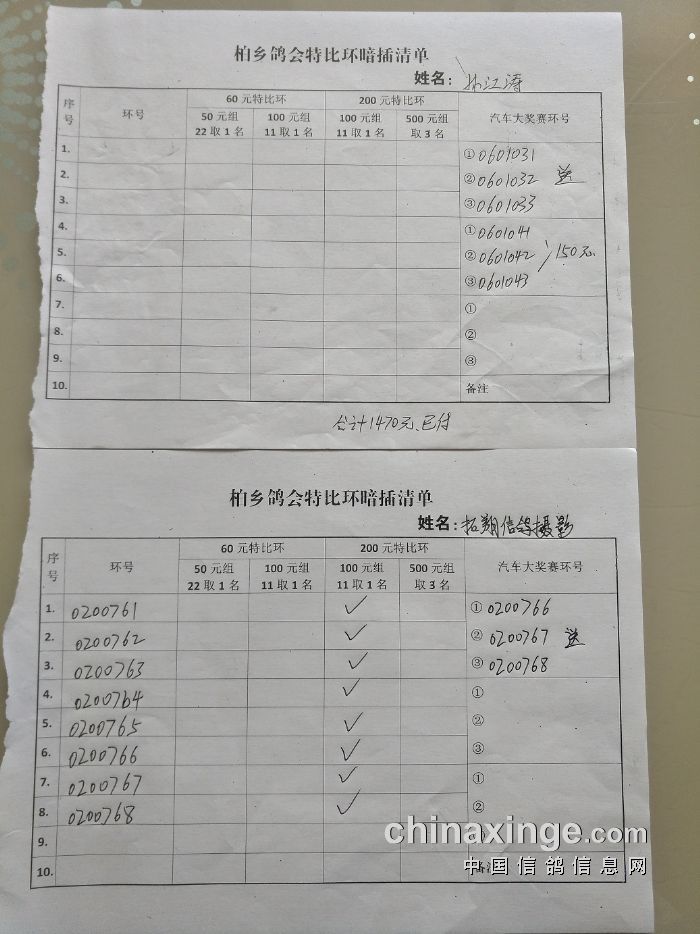 柏乡鸽会特比环暗插清单
姓名：孙江涛
序号 环号 60元特比环 200元特比环 汽车大奖赛环号
50元组 22取1名 100元组 11取1名 100元组 11取1名 500元组 取3名
1. ①0601031
2. ②0601032 送
3. ③0601033
4. ①0601041
5. ②0601042 150元
6. ③0601043
7. ①
8. ②
9. ③
10. 备注
合计1470元、已付
柏乡鸽会特比环暗插清单
姓名：拓翔信鸽摄影
序号 环号 60元特比环 200元特比环 汽车大奖赛环号
50元组 22取1名 100元组 11取1名 100元组 11取1名 500元组 取3名
1. 0200761 ✓ ①0200766
2. 0200762 ✓ ②0200767 送
3. 0200763 ✓ ③0200768
4. 0200764 ✓ ①
5. 0200765 ✓ ②
6. 0200766 ✓ ③
7. 0200767 ✓ ①
8. 0200768 ✓ ②
9.
10. 备注
chinaxinge.com
中国信鸽信息网